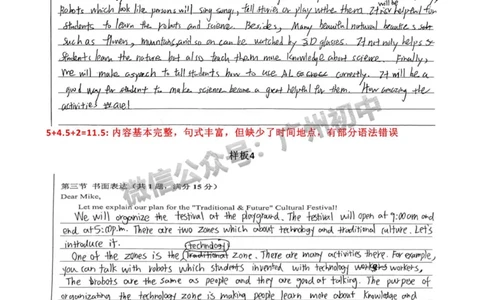 Robots which look like persons will sing songs, tell stories or play with them. It will be helpful for
students to learn the robots and science. Besides, Many beautiful natural beauties such
such as flowers, mountains, and so on can be watched by 3D glasses. It not only helps
students learn the nature but also teach them more knowledge about science. Finally,
we will make a speech to tell students how to use AI correctly. It will be a
good way for student to make science be a great helpful for them. How amazing the
activities are!
5+4.5+2=11.5: 内容基本完整，句式丰富，但缺少了时间地点，有部分语法错误
样板4
微信公众号：广州初中
第三节 书面表达（共 1 题，满分 15 分）
Dear Mike,
Let me explain our plan for the "Traditional & Future" Cultural Festival!
We will organize the festival at the playground. The festival will open at 9:00am and
end at 5:00p.m. There are two zones which about technology and traditional culture. Let's
introduce it.
One of the zones is the technology zone. There are many activities there. For example,
you can talk with robots which students invented with technology workers,
The robots are the same as people and they are good at talking. The purpose of
organizating the technology zone is making people learn more about knowledge and